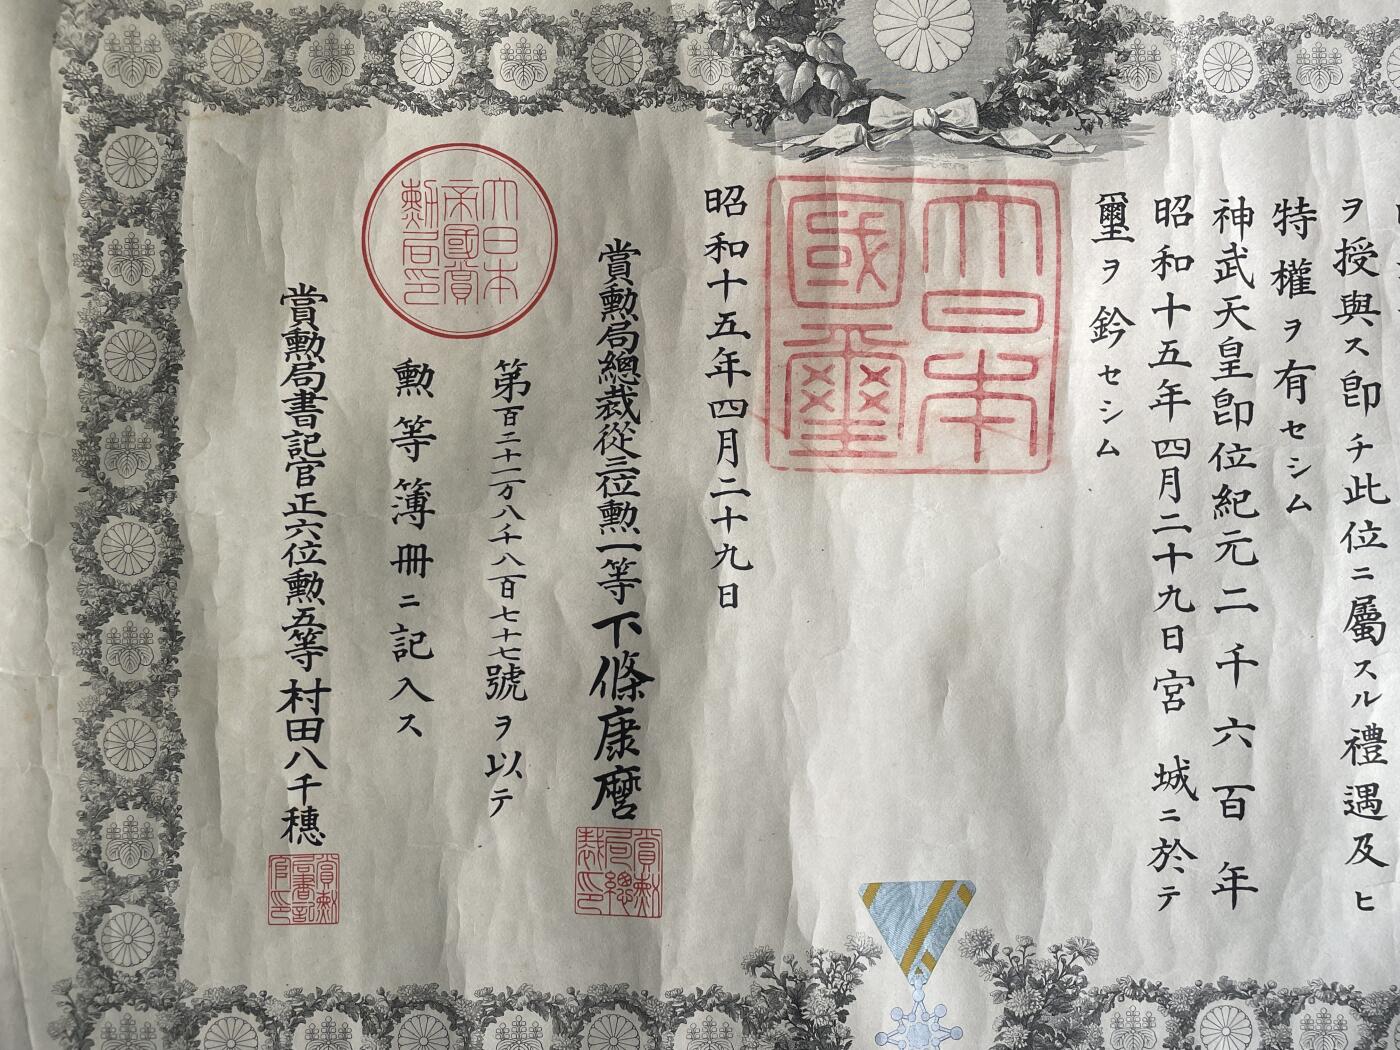 ヲ授與ス卽チ此位ニ屬スル禮遇及ヒ
特權ヲ有セシム
神武天皇卽位紀元二千六百年
昭和十五年四月二十九日宮城ニ於テ
璽ヲ鈐セシム
大日本
國璽
昭和十五年四月二十九日
賞勲局總裁從三位勲一等下條康麿
賞勲
局總
裁印
第百二十一万八千八百七十七號ヲ以テ
大日本
帝國賞
勲局印
勲等簿冊ニ記入ス
賞勲局書記官正六位勲五等村田八千穗
賞勲
局書記
官印